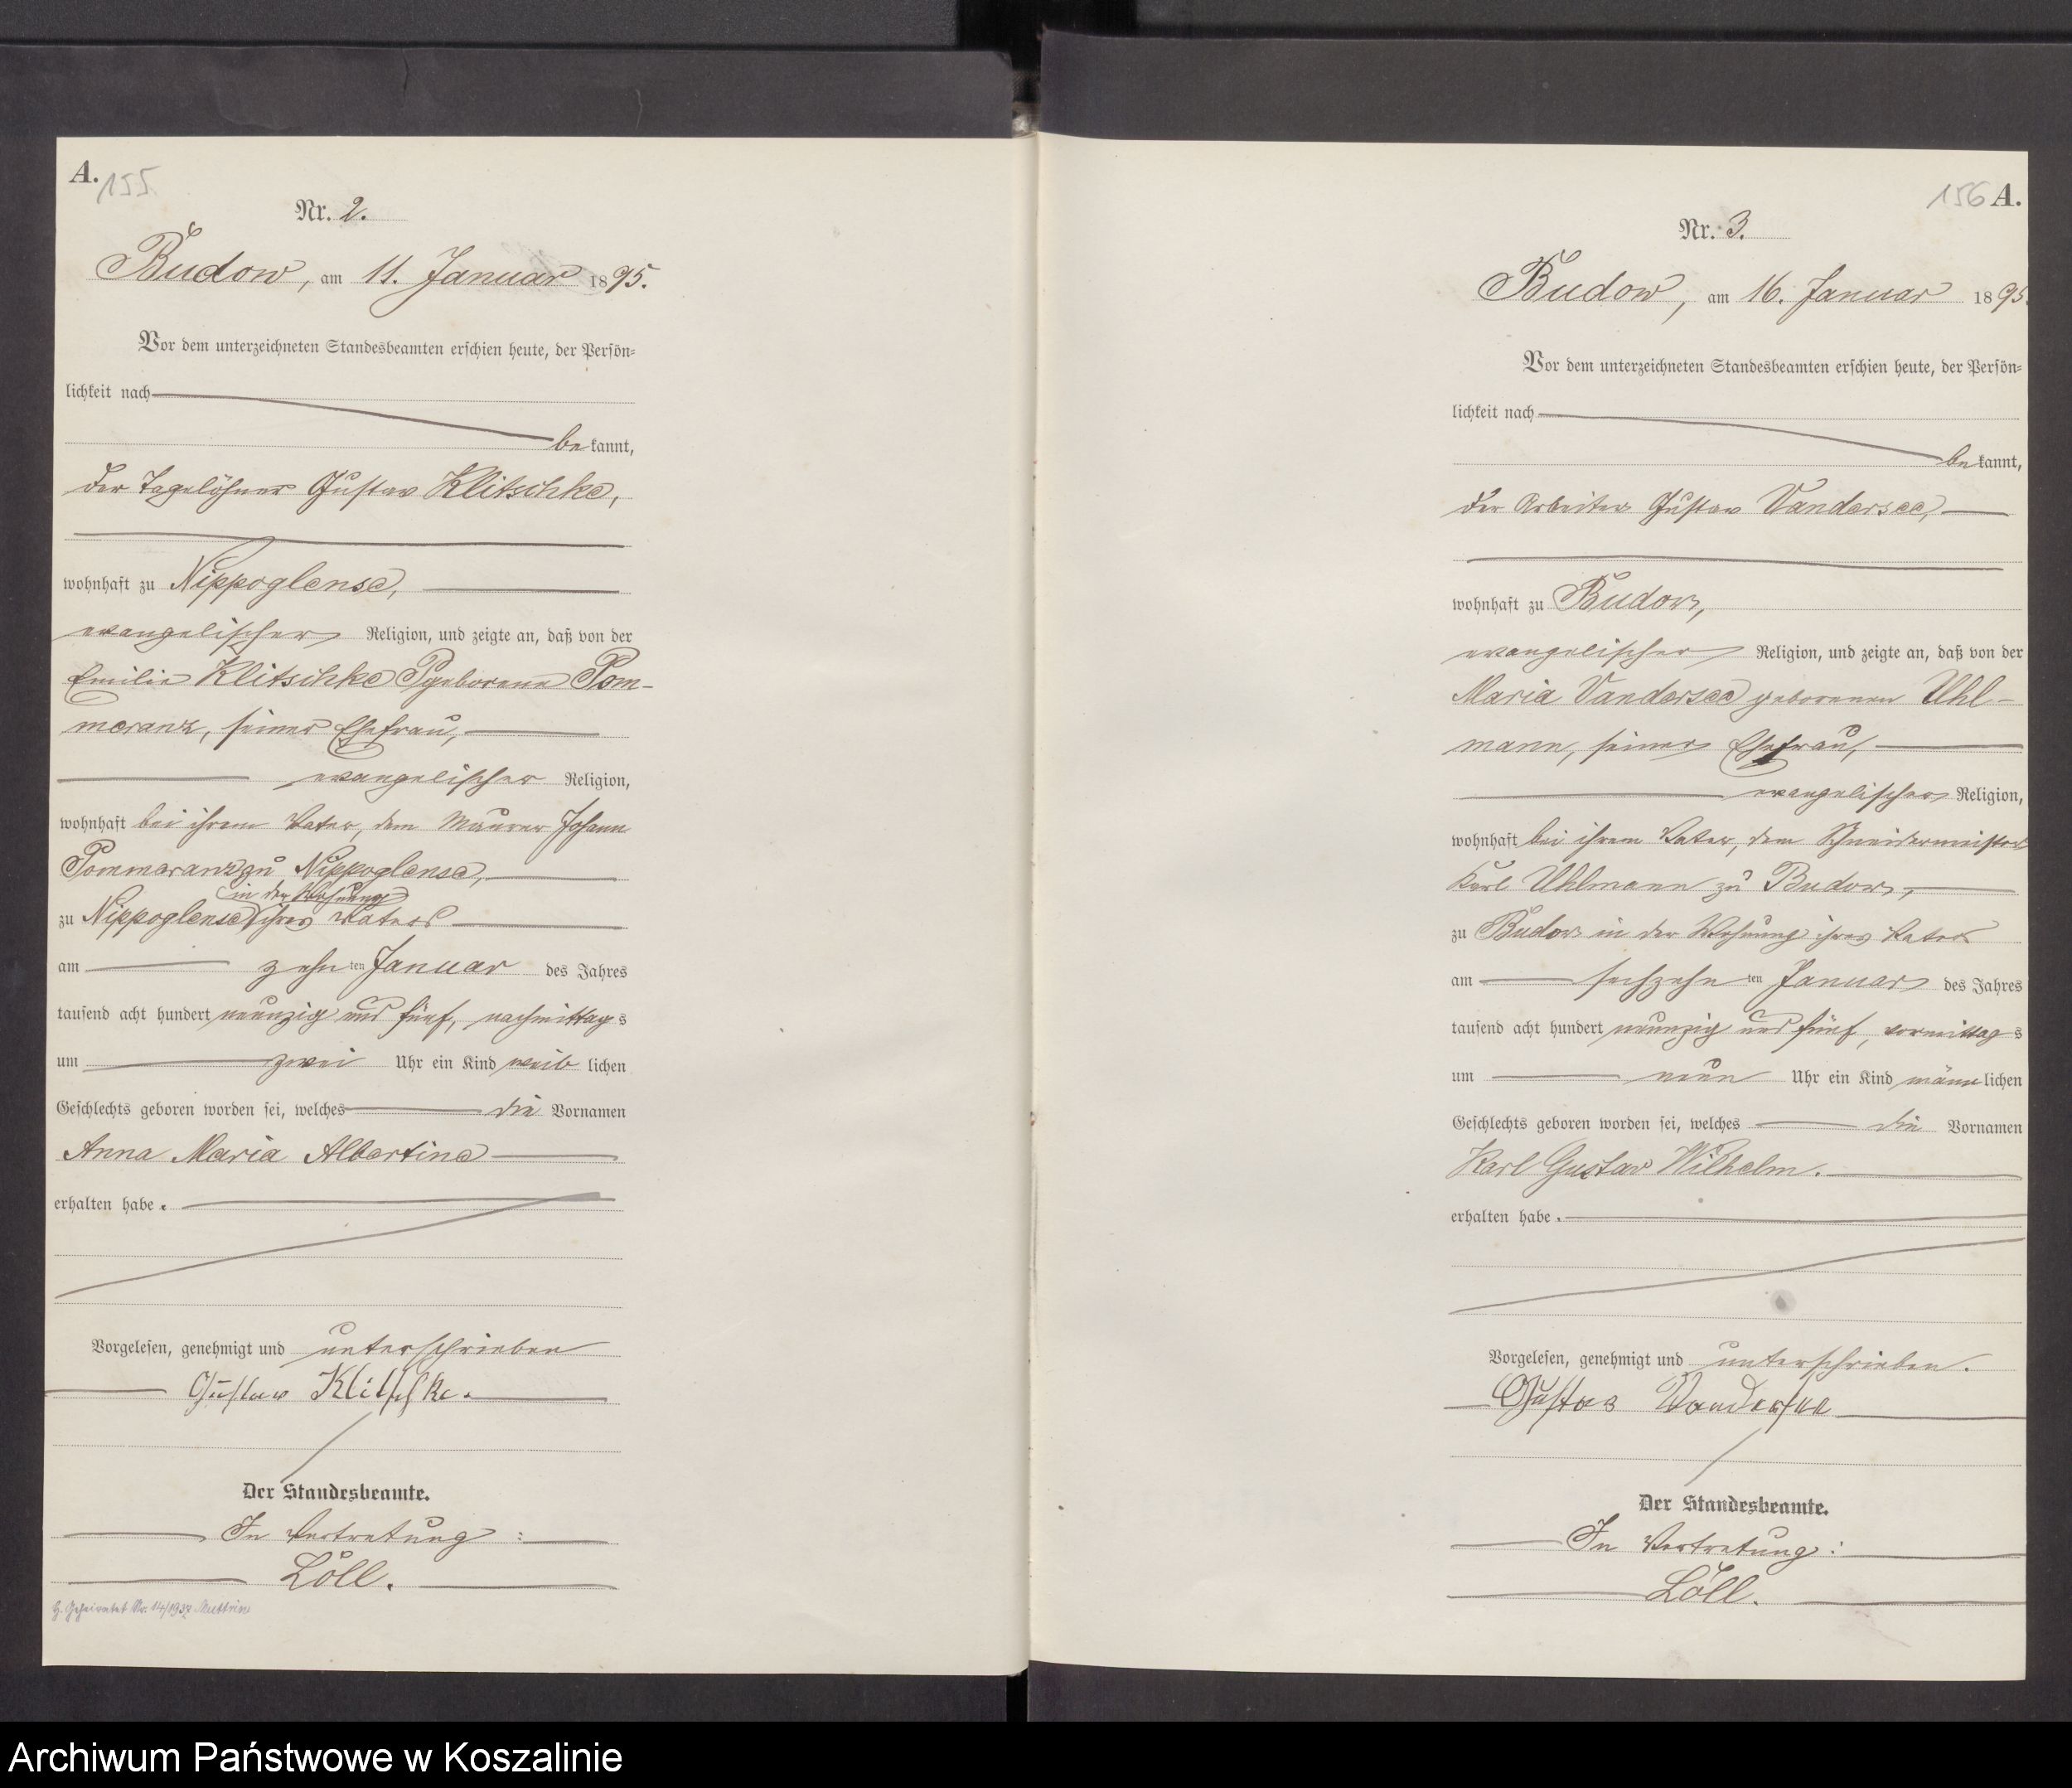 A. 155.
Nr. 2.
Budow, am 11. Januar 1895.
Vor dem unterzeichneten Standesbeamten erschien heute, der Persön-
lichkeit nach
bekannt,
der Tagelöhner Gustav Klitschke,
wohnhaft zu Nippoglense,
evangelischer Religion, und zeigte an, daß von der
Emilie Klitschke geborene Pom-
meranz, seiner Ehefrau,
evangelischer Religion,
wohnhaft bei ihrem Vater, dem Maurer Johann
Pommeranz zu Nippoglense,
in der Wohnung
zu Nippoglense ihres Vaters
am zehnten Januar des Jahres
tausend acht hundert neunzig und fünf, nachmittags
um zwei Uhr ein Kind weiblichen
Geschlechts geboren worden sei, welches die Vornamen
Anna Maria Albertine
erhalten habe.
Vorgelesen, genehmigt und unterschrieben
Gustav Klitschke.
Der Standesbeamte.
In Vertretung:
Löll.
Geheiratet Nr. 14/1937 Muttrin
156 A.
Nr. 3.
Budow, am 16. Januar 1895
Vor dem unterzeichneten Standesbeamten erschien heute, der Persön-
lichkeit nach
bekannt,
der Arbeiter Gustav Vandersee,
wohnhaft zu Budow,
evangelischer Religion, und zeigte an, daß von der
Maria Vandersee geborenen Uhl-
mann, seiner Ehefrau,
evangelischer Religion,
wohnhaft bei ihrem Vater, dem Schneidermeister
Karl Uhlmann zu Budow,
zu Budow in der Wohnung ihres Vaters
am sechzehnten Januar des Jahres
tausend acht hundert neunzig und fünf, vormittags
um neun Uhr ein Kind männlichen
Geschlechts geboren worden sei, welches die Vornamen
Karl Gustav Wilhelm.
erhalten habe.
Vorgelesen, genehmigt und unterschrieben.
Gustav Wandersee
Der Standesbeamte.
In Vertretung:
Löll.
Archiwum Państwowe w Koszalinie